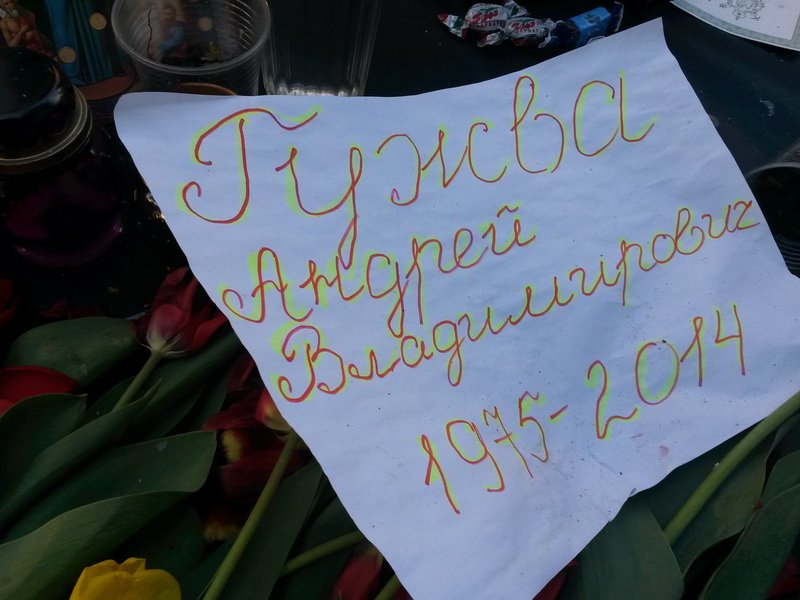 Гужва
Андрей
Владимирович
1975-2014